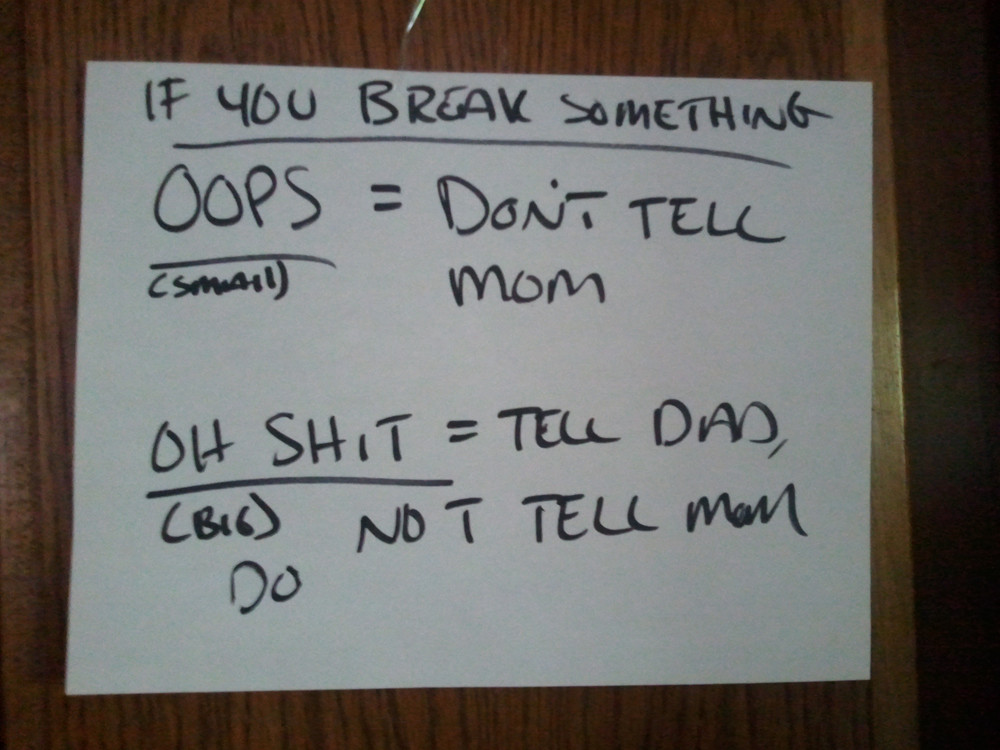 IF YOU BREAK SOMETHING
OOPS = DON'T TELL
(SMALL) MOM
OH SHIT = TELL DAD,
(BIG) NOT TELL MOM
DO